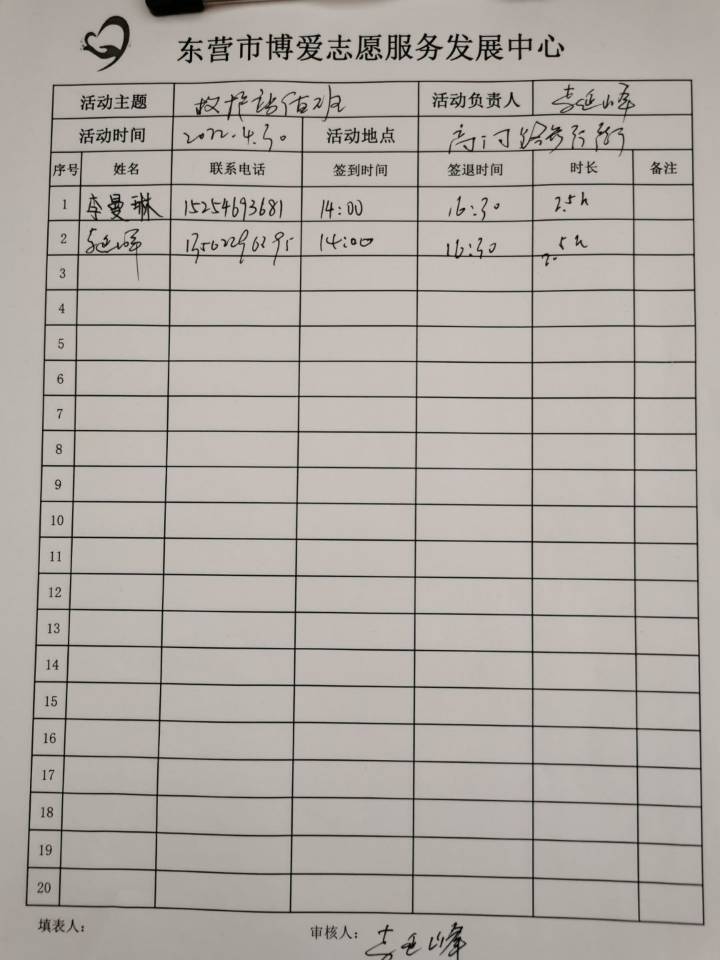 东营市博爱志愿服务发展中心
活动主题 救护站值班 活动负责人 李延峰
活动时间 2022.4.30 活动地点 步行街
序号 姓名 联系电话 签到时间 签退时间 时长 备注
1 李曼琳 15254693681 14:00 16:30 2.5h
2 李延峰 14:00 16:30 2.5h
3
4
5
6
7
8
9
10
11
12
13
14
15
16
17
18
19
20
填表人: 审核人: 李延峰